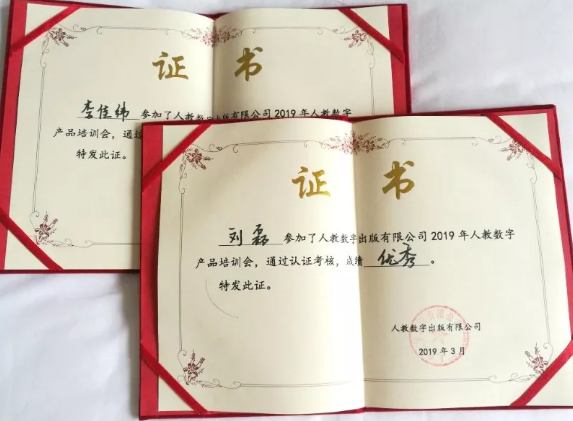 证 书
李佳纬 参加了人教数字出版有限公司2019年人教数字
产品培训会，通过
特发此证。
证 书
刘磊 参加了人教数字出版有限公司2019年人教数字
产品培训会，通过认证考核，成绩 优秀 。
特发此证。
人教数字出版有限公司
2019年3月